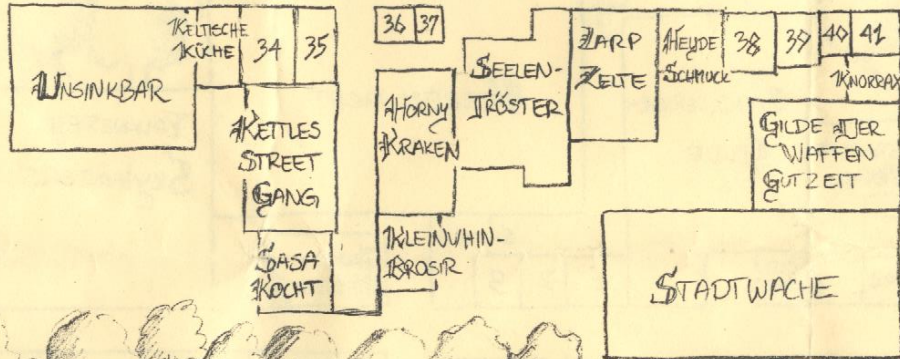 UNSINKBAR
KELTISCHE
KÜCHE
34
35
36
37
KETTLES
STREET
GANG
SASA
KOCHT
HORNY
KRAKEN
KLEINVHIN-
BROSIR
SEELEN-
TRÖSTER
LARP
ZELTE
HEYDE
SCHMUCK
38
39
40
41
KNORRAX
GILDE DER
WAFFEN
GUTZEIT
STADTWACHE